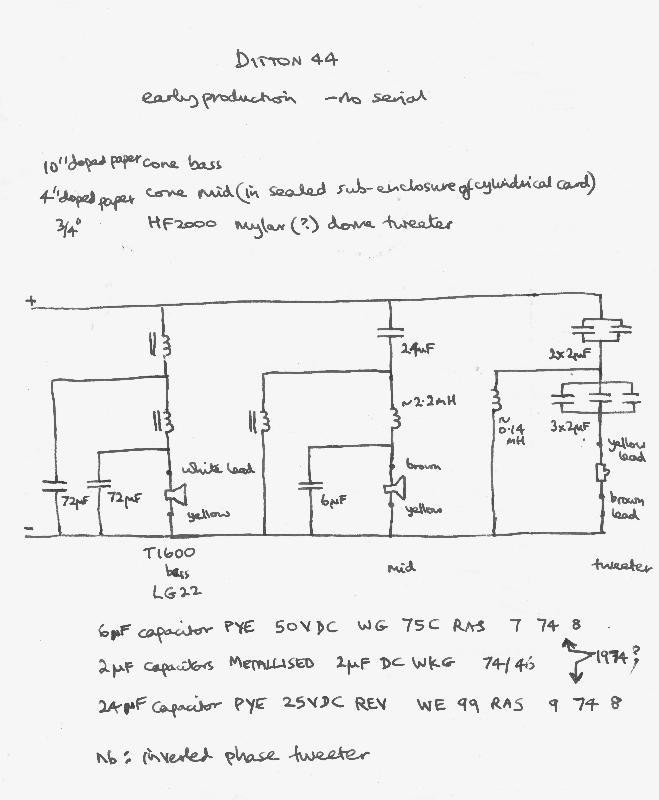 DITTON 44
early production - no serial
10" doped paper cone bass
4" doped paper cone mid (in sealed sub-enclosure of cylindrical card)
3/4" HF2000 mylar (?) dome tweeter
+
24µF
2x2µF
~2.2mH
~ 0.14 mH
3x2µF
yellow lead
white lead
brown
72µF
72µF
6µF
yellow
yellow
brown lead
-
T1600
bass
LG22
mid
tweeter
6µF capacitor PYE 50VDC WG 75C RAS 7 74 8
2µF capacitors METALLISED 2µF DC WKG 74/4's
1974?
24µF capacitor PYE 25VDC REV WE 99 RAS 9 74 8
Nb: inverted phase tweeter